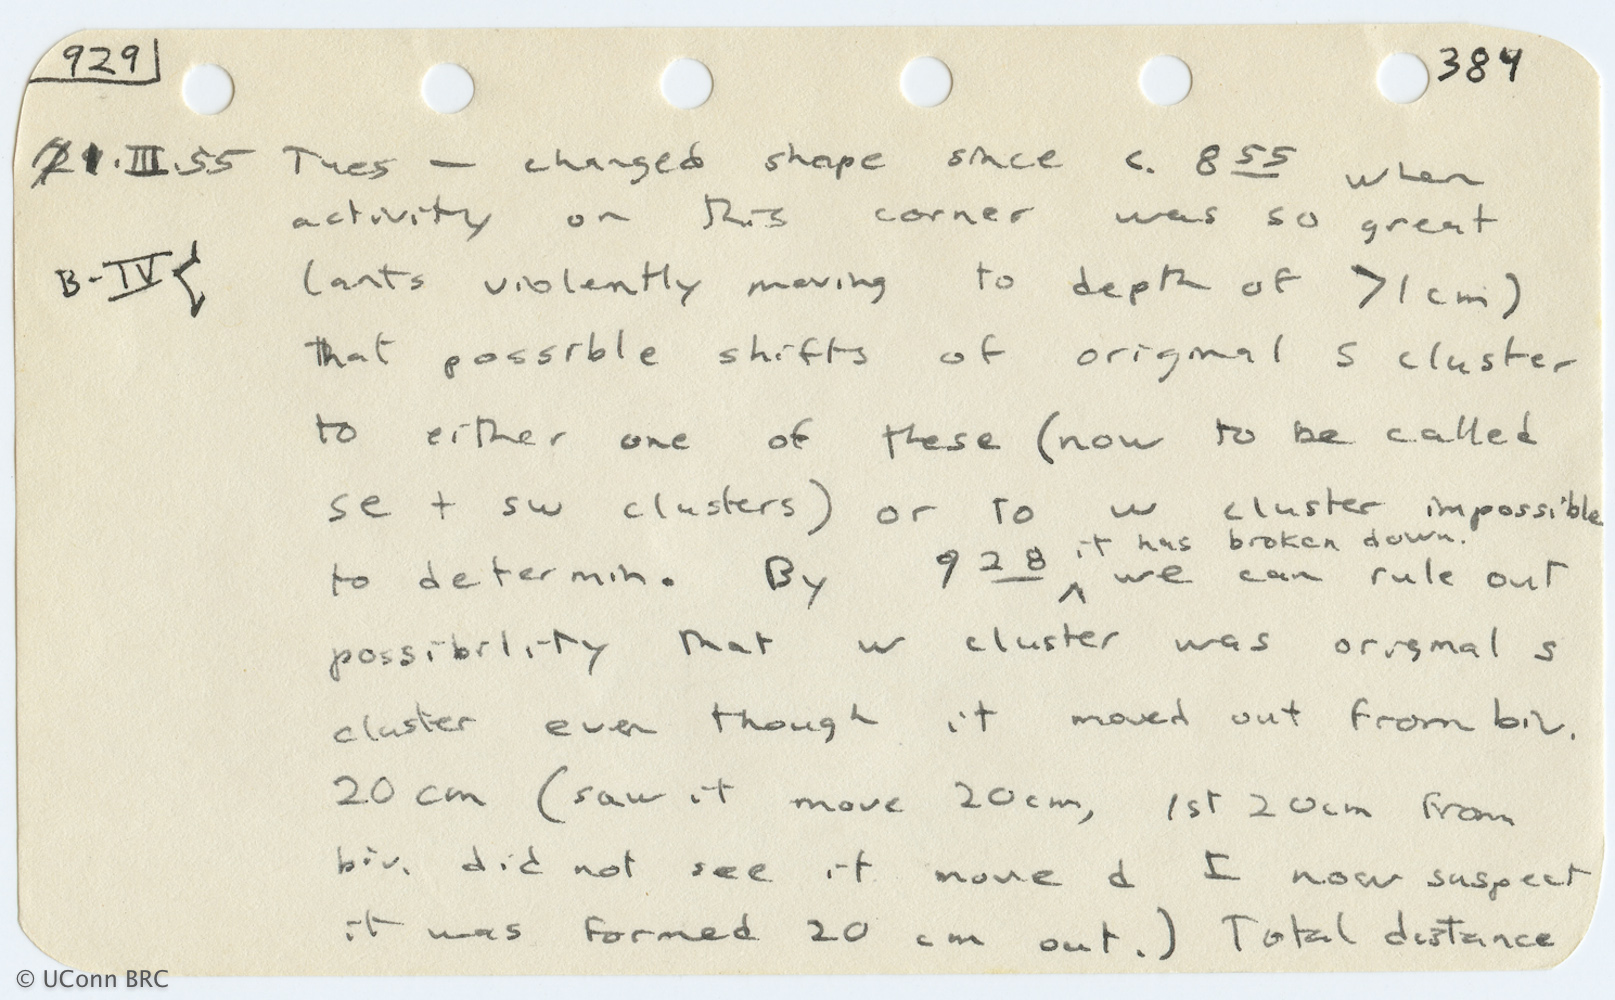 929 384
21.III.55 Tues — changed shape since c. 8 55 when
activity on this corner was so great
B-IV { (ants violently moving to depth of >1cm)
that possible shifts of original S cluster
to either one of these (now to be called
SE + SW clusters) or to W cluster impossible
it has broken down.
to determin. By 9 28 ^ we can rule out
possibility that W cluster was original S
cluster even though it moved out from biv.
20 cm (saw it move 20cm, 1st 20cm from
biv. did not see it move & I now suspect
it was formed 20 cm out.) Total distance
© UConn BRC